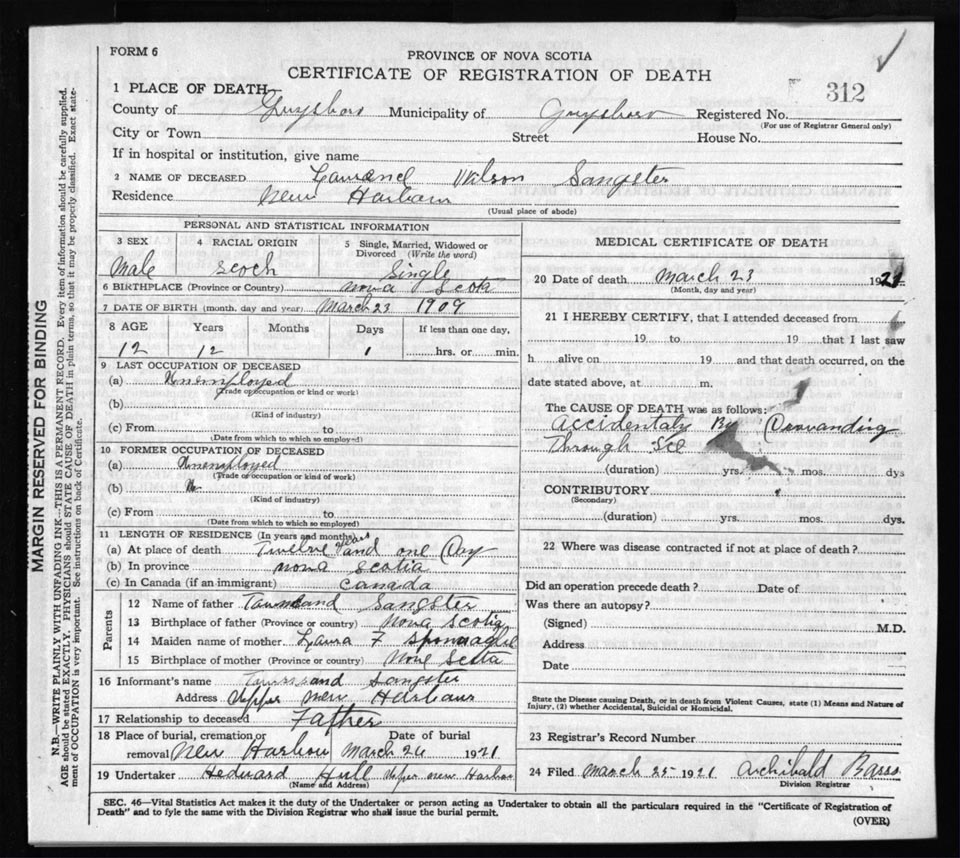 FORM 6
PROVINCE OF NOVA SCOTIA
CERTIFICATE OF REGISTRATION OF DEATH
312
1 PLACE OF DEATH
County of Guysboro Municipality of Guysboro Registered No.
(For use of Registrar General only)
City or Town Street House No.
If in hospital or institution, give name
2 NAME OF DECEASED Wilson Sangster
Residence New Harbour
(Usual place of abode)
PERSONAL AND STATISTICAL INFORMATION
3 SEX 4 RACIAL ORIGIN 5 Single, Married, Widowed or Divorced (Write the word)
Male Scoch Single
6 BIRTHPLACE (Province or Country) Nova Scotia
7 DATE OF BIRTH (month, day and year) March 23 1909
8 AGE Years Months Days If less than one day,
12 12 1 hrs. or min.
9 LAST OCCUPATION OF DECEASED
(a) Unemployed
(Trade or occupation or kind or work)
(b)
(Kind of industry)
(c) From to
(Date from which to which so employed)
10 FORMER OCCUPATION OF DECEASED
(a) Unemployed
(Trade or occupation or kind of work)
(b)
(Kind of industry)
(c) From to
(Date from which to which so employed)
11 LENGTH OF RESIDENCE (In years and months)
(a) At place of death Twelve years and one Day
(b) In province Nova Scotia
(c) In Canada (if an immigrant) Canada
Parents
12 Name of father Sangster
13 Birthplace of father (Province or country) Nova Scotia
14 Maiden name of mother Laura F
15 Birthplace of mother (Province or country)
16 Informant's name Sangster
Address Upper New Harbour
17 Relationship to deceased Father
18 Place of burial, cremation or removal Date of burial
New Harbour March 26 1921
19 Undertaker Hull Upper New Harbor
(Name and Address)
MEDICAL CERTIFICATE OF DEATH
20 Date of death March 23 1921
(Month, day and year)
21 I HEREBY CERTIFY, that I attended deceased from
19 to 19 that I last saw
h alive on 19 and that death occurred, on the
date stated above, at m.
The CAUSE OF DEATH was as follows:
Accidentaly By
Through Ice
(duration) yrs. mos. dys
CONTRIBUTORY
(Secondary)
(duration) yrs. mos. dys.
22 Where was disease contracted if not at place of death?
Did an operation precede death? Date of
Was there an autopsy?
(Signed) M.D.
Address
Date
State the Disease causing Death, or in death from Violent Causes, state (1) Means and Nature of
Injury, (2) whether Accidental, Suicidal or Homicidal.
23 Registrar's Record Number
24 Filed March 25 1921 Archibald Barss
Division Registrar
SEC. 46—Vital Statistics Act makes it the duty of the Undertaker or person acting as Undertaker to obtain all the particulars required in the "Certificate of Registration of
Death" and to fyle the same with the Division Registrar who shall issue the burial permit.
(OVER)
MARGIN RESERVED FOR BINDING
N.B.—WRITE PLAINLY WITH UNFADING INK—THIS IS A PERMANENT RECORD. Every item of information should be carefully supplied.
AGE should be stated EXACTLY. PHYSICIANS should STATE CAUSE OF DEATH in plain terms, so that it may be properly classified. Exact state-
ment of OCCUPATION is very important. See instructions on back of Certificate.